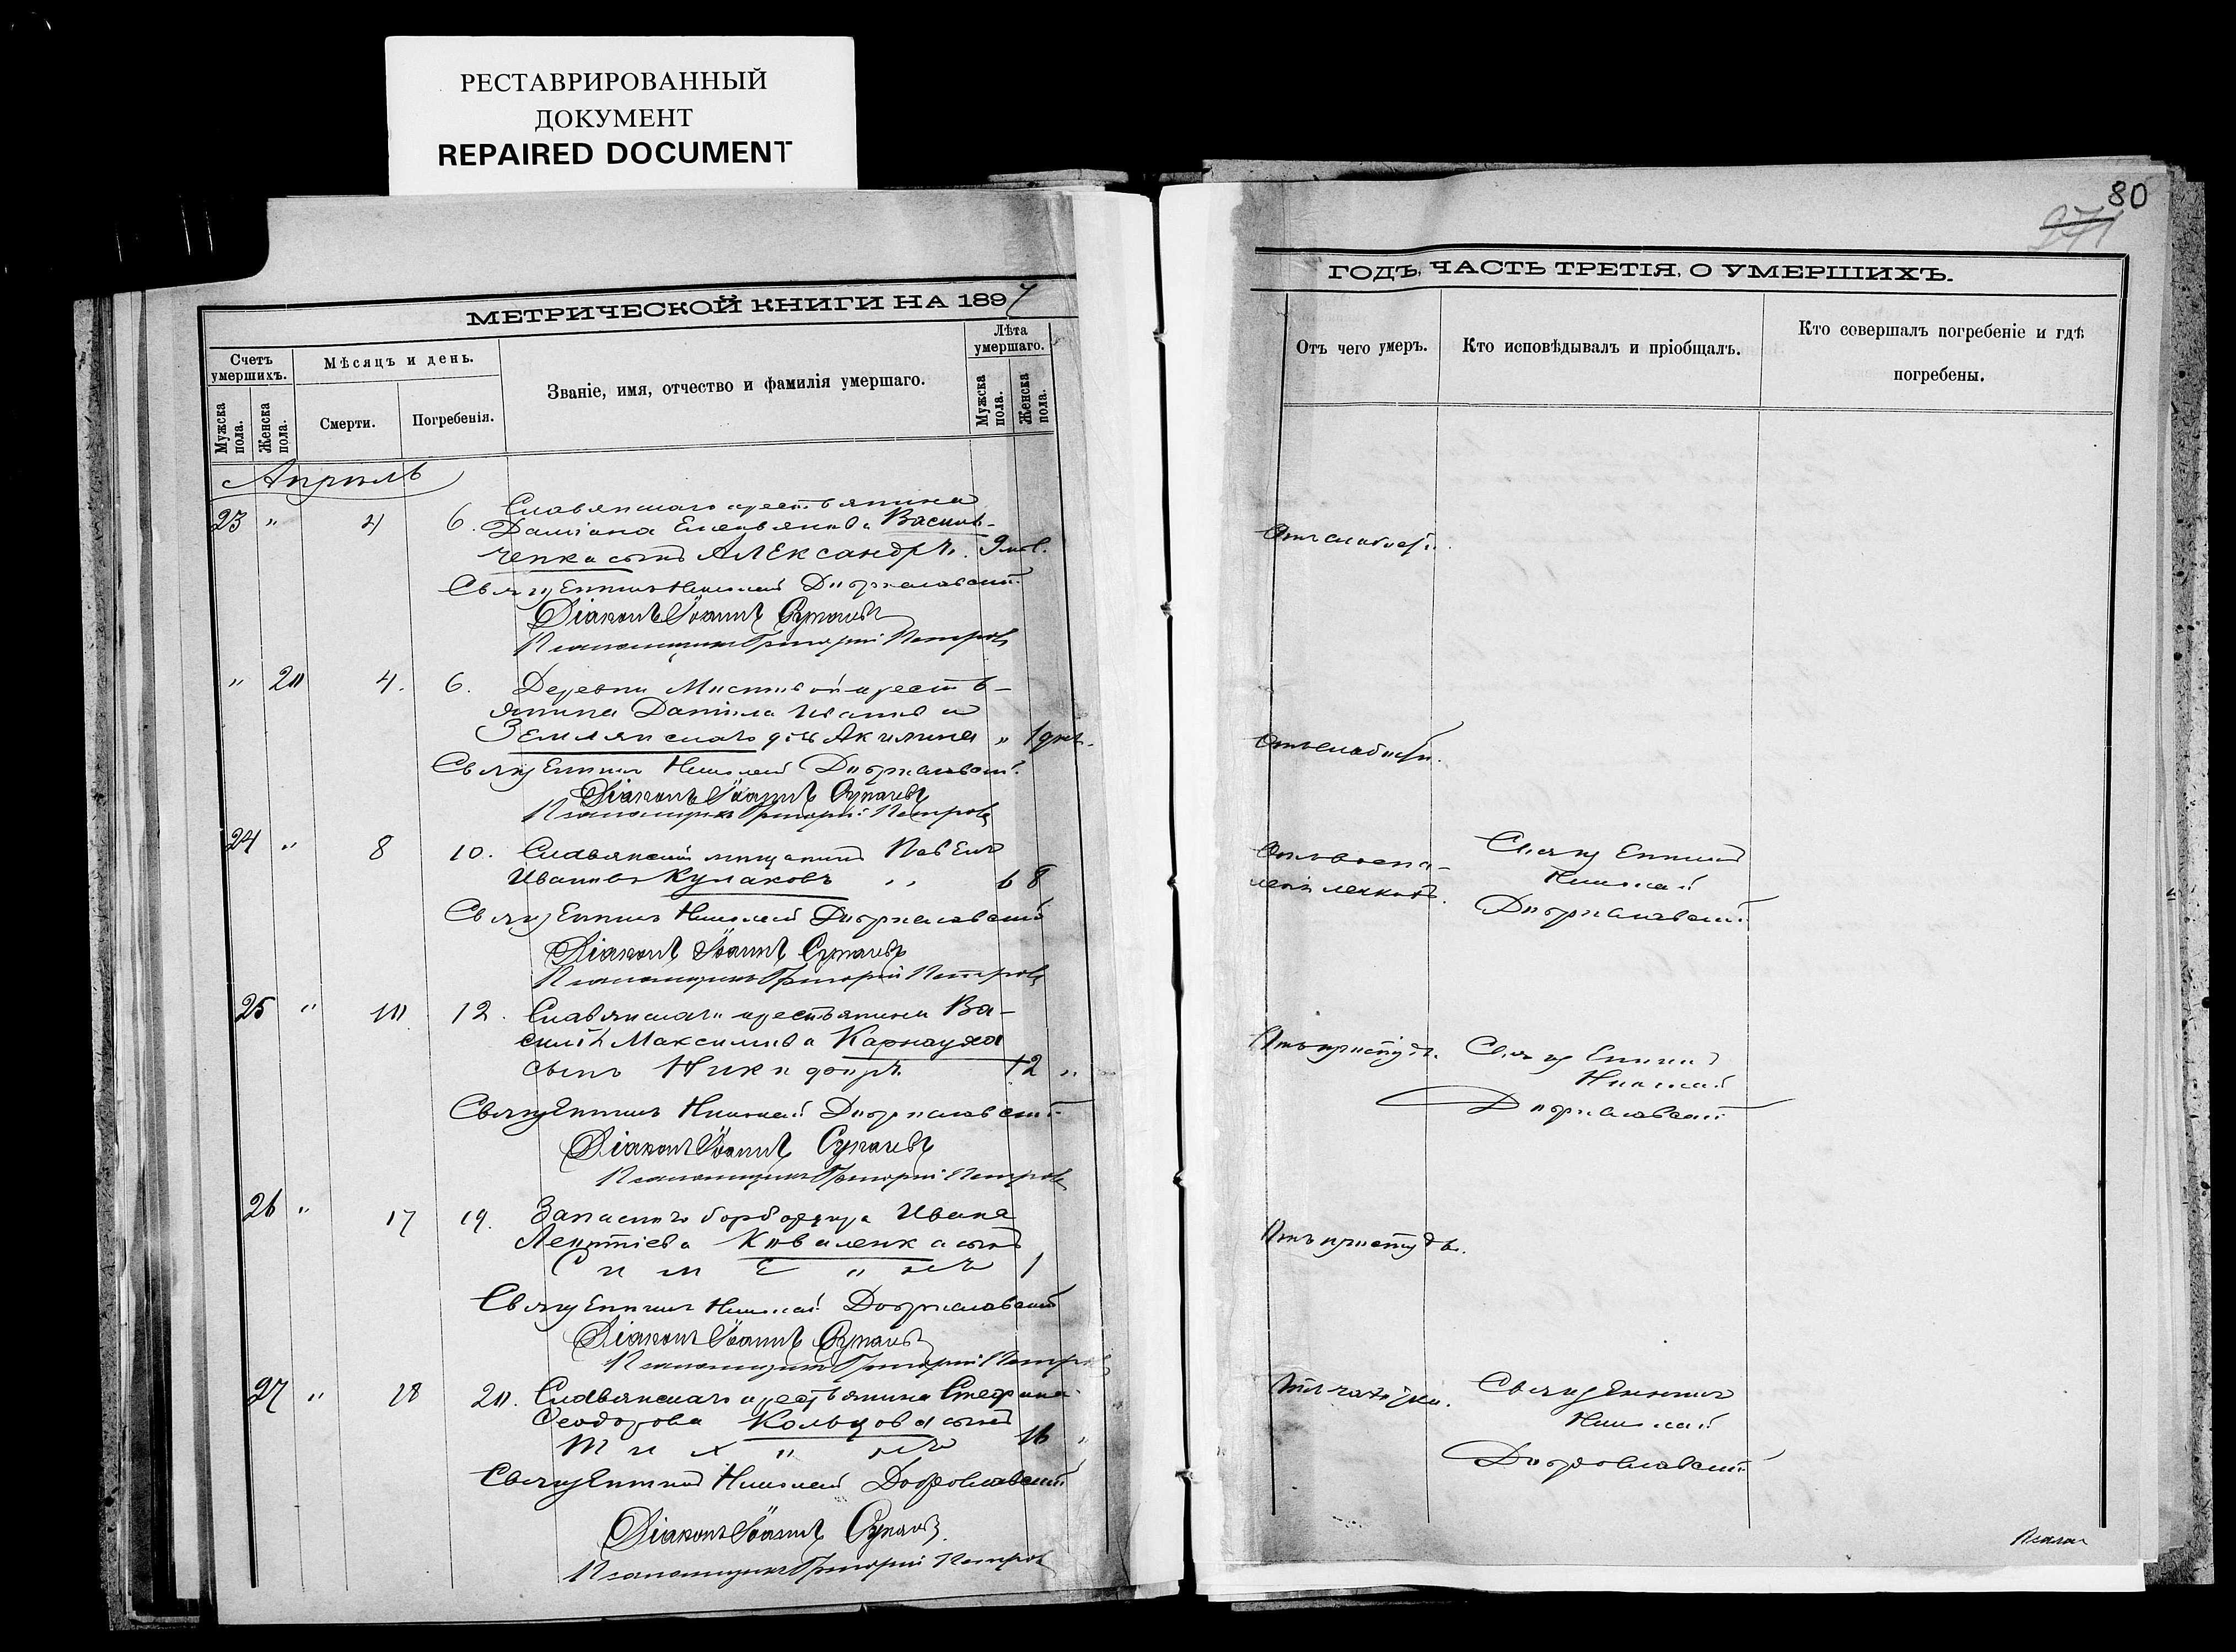 РЕСТАВРИРОВАННЫЙ
ДОКУМЕНТ
REPAIRED DOCUMENT
80
271
МЕТРИЧЕСКОЙ КНИГИ НА 1897
Счетъ умершихъ.
Мѣсяцъ и день.
Званіе, имя, отчество и фамилія умершаго.
Лѣта умершаго.
Мужска пола.
Женска пола.
Смерти.
Погребенія.
Мужска пола.
Женска пола.
Апрѣль
23 " 4 6. Славянскаго крестьянина
Даміана Василь-
ченка сынъ Александръ. 9 мѣс.
Священникъ Николай Доброславскій
Діаконъ Іоаннъ
Псаломщикъ Григорій Петровъ
" 20 4. 6. Деревни кресть-
янина Даніила Иванова
Землянскаго дочь Акилина " 1 дня.
Священникъ Николай Доброславскій
Діаконъ Іоаннъ
Псаломщикъ Григорій Петровъ
24 " 8 10. Славянскій мѣщанинъ Павелъ
Ивановъ Кулаковъ " 68
Священникъ Николай Доброславскій
Діаконъ Іоаннъ
Псаломщикъ Григорій Петровъ
25 " 10 12. Славянскаго крестьянина Ва-
силія Максимова Карнауха
сынъ Никифоръ 12 "
Священникъ Николай Доброславскій
Діаконъ Іоаннъ
Псаломщикъ Григорій Петровъ
26 " 17 19. Запаснаго Ивана
Леонтіева Коваленка сынъ
Симеонъ 1
Священникъ Николай Доброславскій
Діаконъ Іоаннъ
Псаломщикъ Григорій Петровъ
27 " 18 20. Славянскаго крестьянина Стефана
Феодорова Кольцова сынъ
Тихонъ 16 "
Священникъ Николай Доброславскій
Діаконъ Іоаннъ
Псаломщикъ Григорій Петровъ
ГОДЪ, ЧАСТЬ ТРЕТІЯ, О УМЕРШИХЪ.
Отъ чего умеръ.
Кто исповѣдывалъ и пріобщалъ.
Кто совершалъ погребеніе и гдѣ
погребены.
Отъ слабости.
Отъ слабости.
Отъ воспа-
ленія легкихъ.
Священникъ
Николай
Доброславскій
Отъ простуды.
Священникъ
Николай
Доброславскій
Отъ простуды.
Отъ чахотки.
Священникъ
Николай
Доброславскій